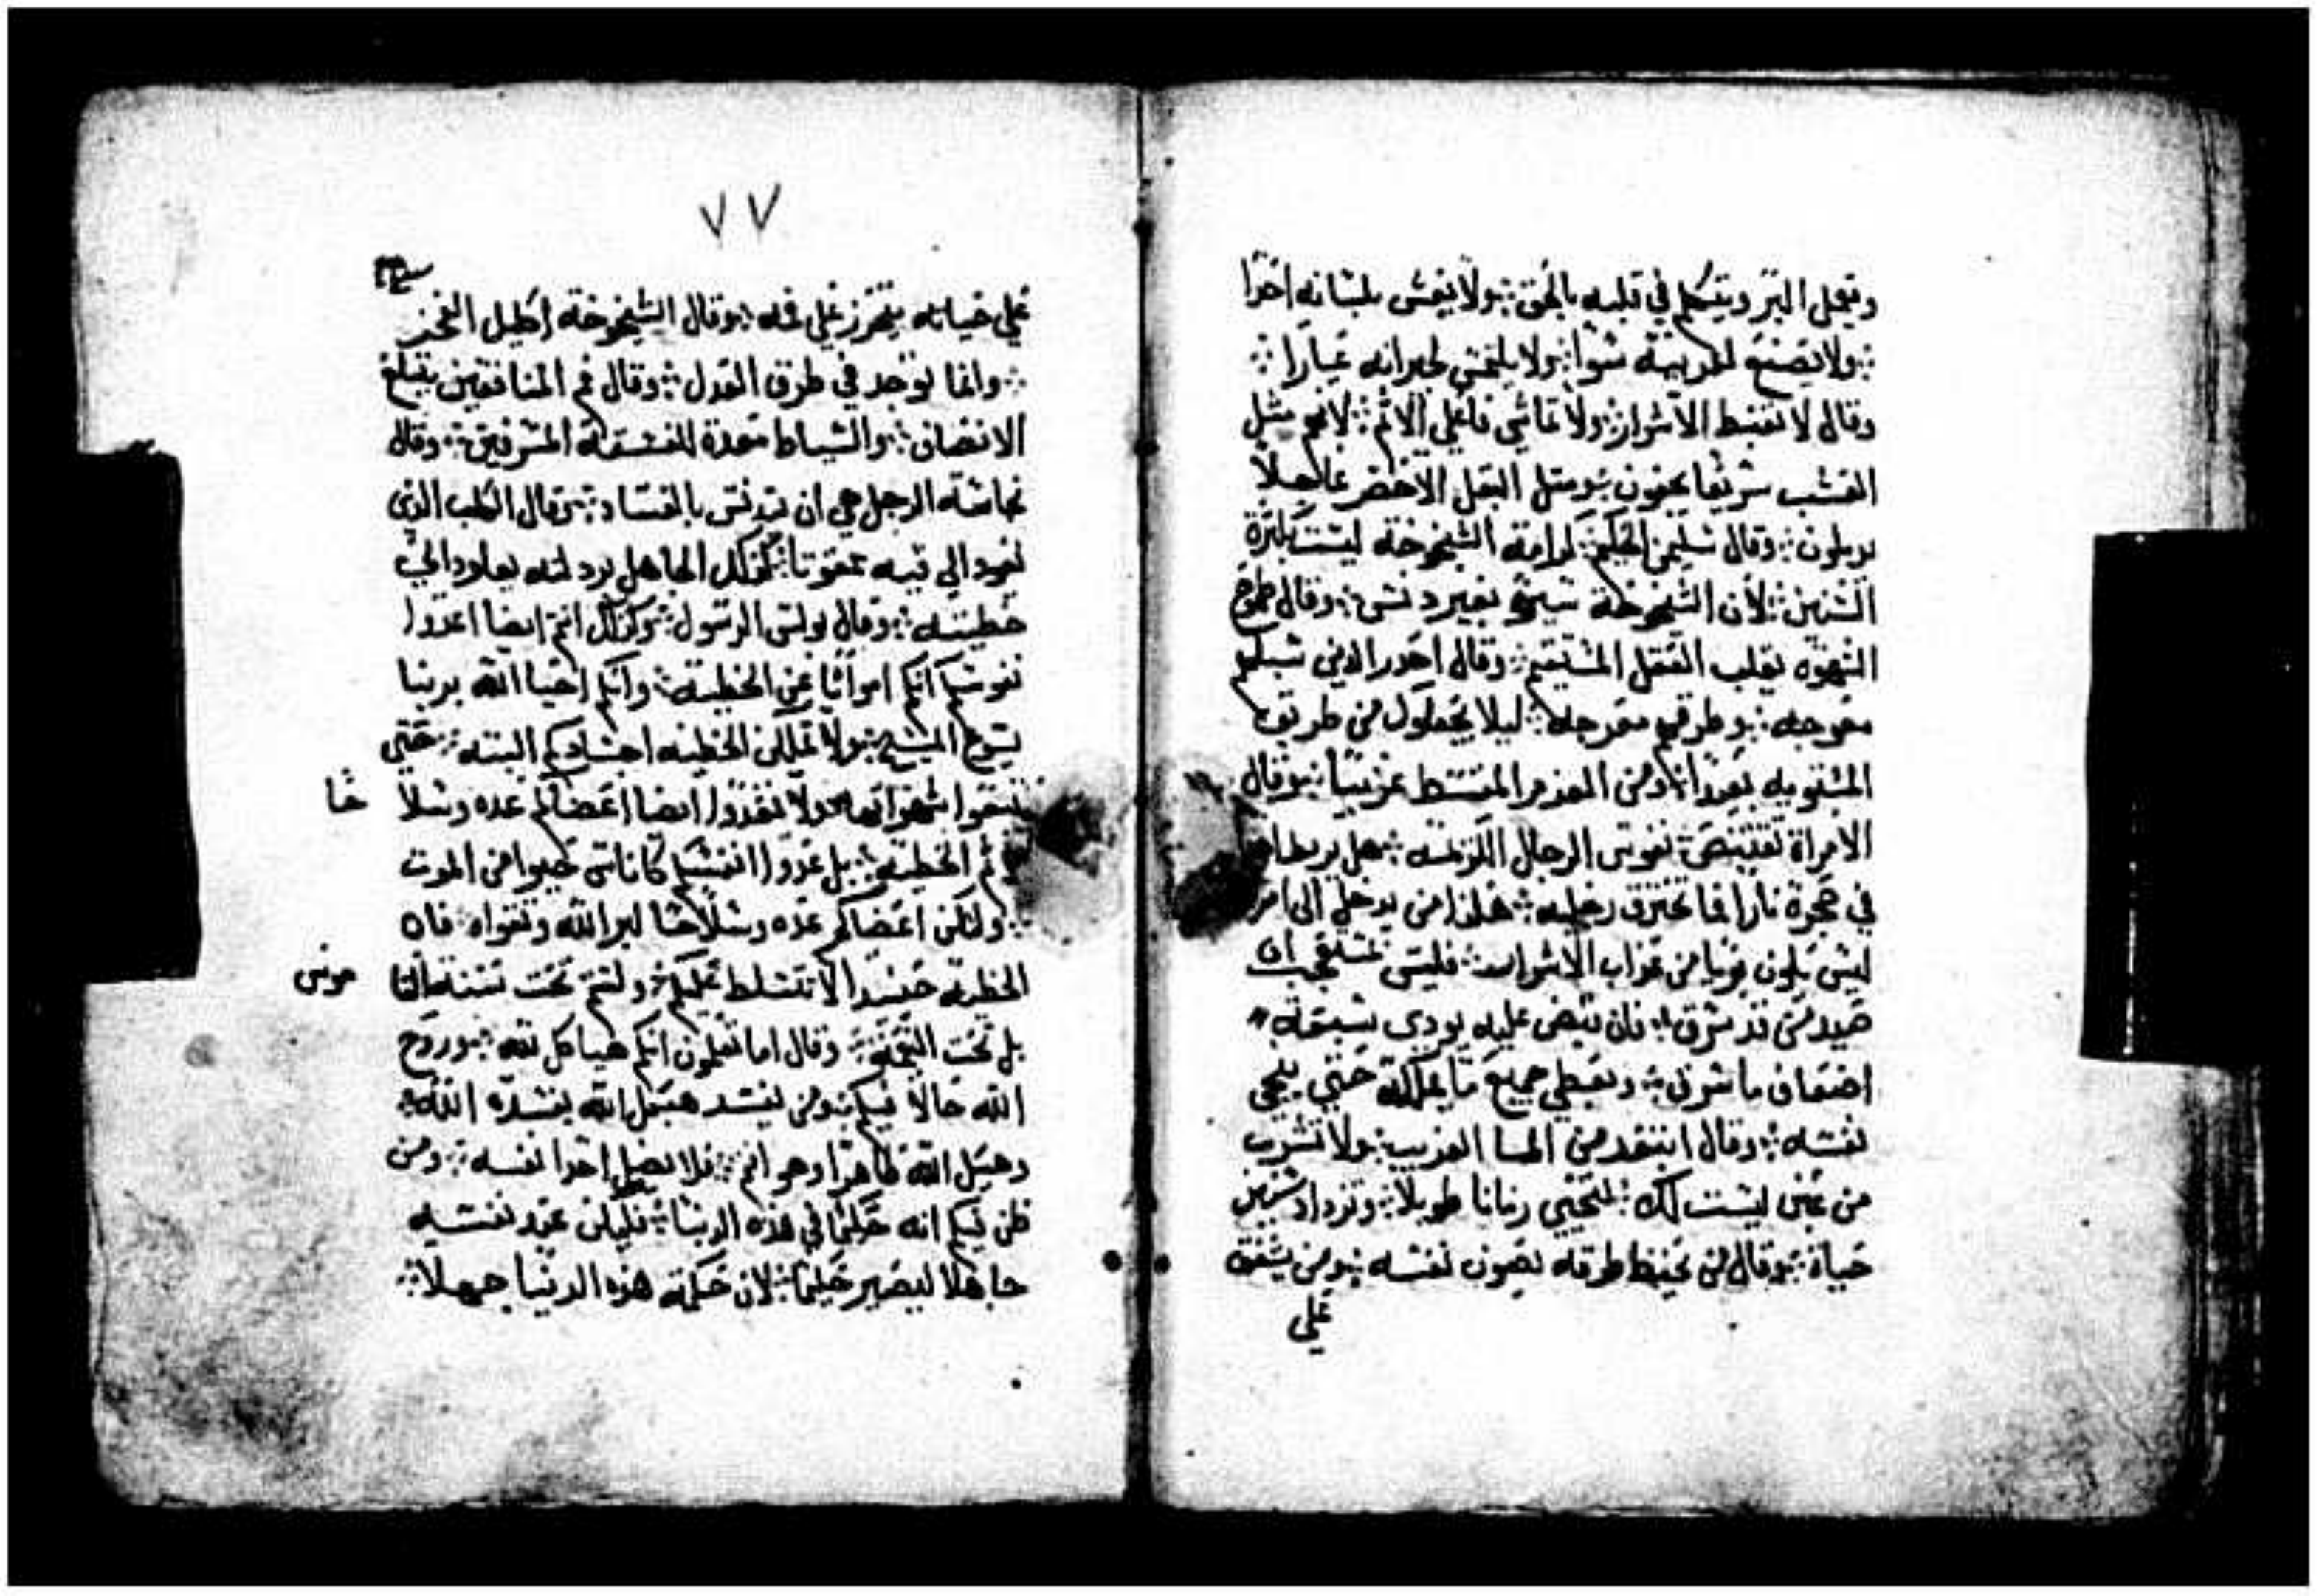 ويعمل البر ويتكلم في قلبه بالحق ولا يغش بلسانه احدا
ولا يصنع لقريبه سوا ولا يلتمس لجيرانه عيارا
وقال لا تغبط الاشرار ولا تماشي فاعلي الاثم لانهم مثل
العشب سريعا يجفون ومثل البقل الاخضر عاجلا
يدبلون وقال سليمن الحكيم كرامة الشيخوخة ليست بكثرة
السنين لان الشيخوخة سيرة بغير دنس وقال طموح
الشهوه يقلب العقل المستقيم وقال احدر الدين سبلهم
معوجه وطرقهم معوجه ليلا يجعلوك من طريق
المستويه بعيدا ومن العزم المقسط غريبا وقال
الامراة تقتنص نفوس الرجال الكريمه هل يربط احد
في حجره نارا انما تحترق رجليه هكذا من يدخل الي امراة
ليس يكون بريا من عذاب الاشرار فليس يستعجب ان
صيد من قد سرق فان قبض عليه يودي بسبعة
اضعاف ما سرق ويعطي جميع ما يملكه حتي ينجي
نفسه وقال ابتعد من الما الغريب ولا تشرب
من عين ليست لك لتحيي زمانا طويلا وتزداد سنين
حياة وقال من يحفظ طرقه يصون نفسه ومن يشفق
علي
٧٧
علي حياته يتحرز علي فمه وقال الشيخوخة اكليل الفخر
وانما توجد في طرق العدل وقال فم المنافقين يبتلع
الانصاف والسياط معدة للفسقة المسرفين وقال
نجاسة الرجل هي ان يتدنس بالفساد وقال الكلب الذي
يعود الي قيه ممقوتا كذلك الجاهل برداته يعاود الي
خطيته وقال بولس الرسول وكذلك انتم ايضا اعدوا
نفوسكم انكم امواتا عن الخطية وانكم احيا الله بربنا
يسوع المسيح ولا تملكن الخطيه اجسادكم البته حتي
تتبعوا شهواتها ولا تعدوا ايضا اعضاكم عده وسلاحا
لاثم الخطية بل عدوا انفسكم كاناس حيوا من الموت
ولتكن اعضاكم عده وسلاحا لبر الله وتقواه فان
الخطية حينيد لا تتسلط عليكم ولستم تحت سنة
بل تحت النعمة وقال اما تعلمون انكم هياكل لله وروح
الله حالا فيكم ومن يفسد هيكل الله يفسده الله
وهيكل الله طاهرا وهو انتم فلا يضل احدا نفسه ومن
ظن فيكم انه حكيما في هذه الدنيا فليكن عند نفسه
جاهلا ليصير حكيما لان حكمة هذه الدنيا جهلا